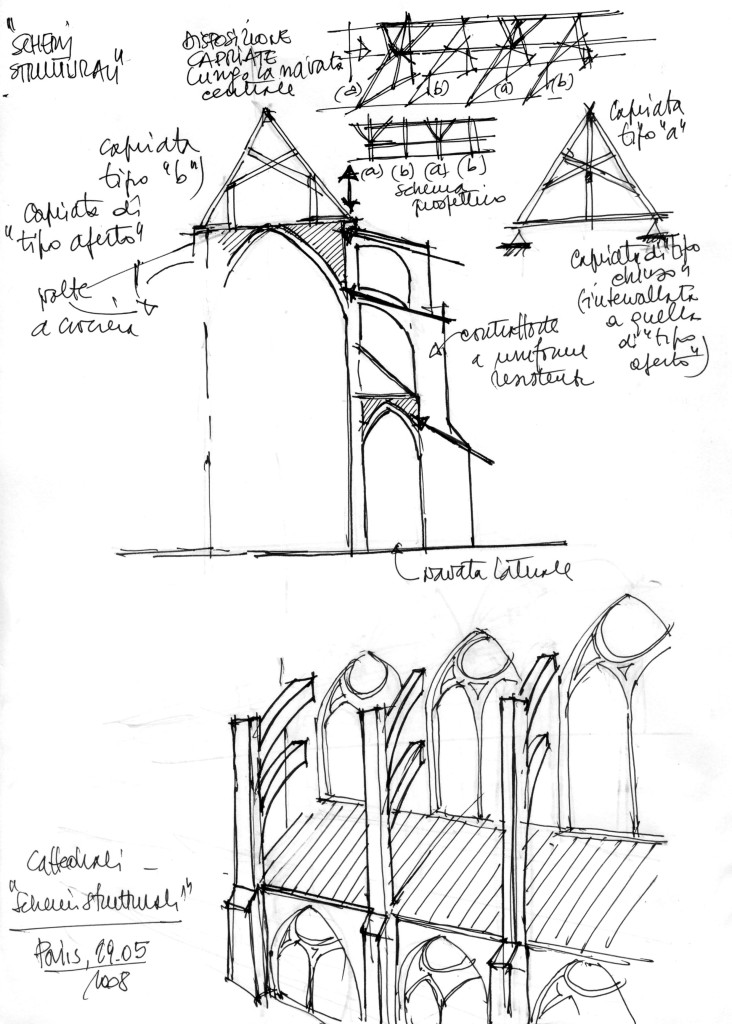 "SCHEMI
STRUTTURALI"
DISPOSIZIONE
CAPRIATE
lungo la navata
centrale
(a) (b) (a) (b)
(a) (b) (a) (b)
schema
prospettico
capriata
tipo "b")
capriata di
"tipo aperto"
volte
a crociera
capriata
tipo "a"
capriata di "tipo
chiuso"
(intervallata
a quella
di "tipo
aperto")
contrafforte
a uniforme
resistenza
navata laterale
Cattedrali -
"Schemi strutturali"
Paris, 29.05
2008